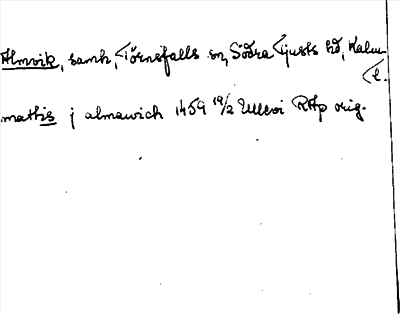 Almvik, samh, Törnsfalls sn, Södra Tjusts hd, Kalm.
l.
mattis j almawich 1459 19/2 Ullevi RAp orig.